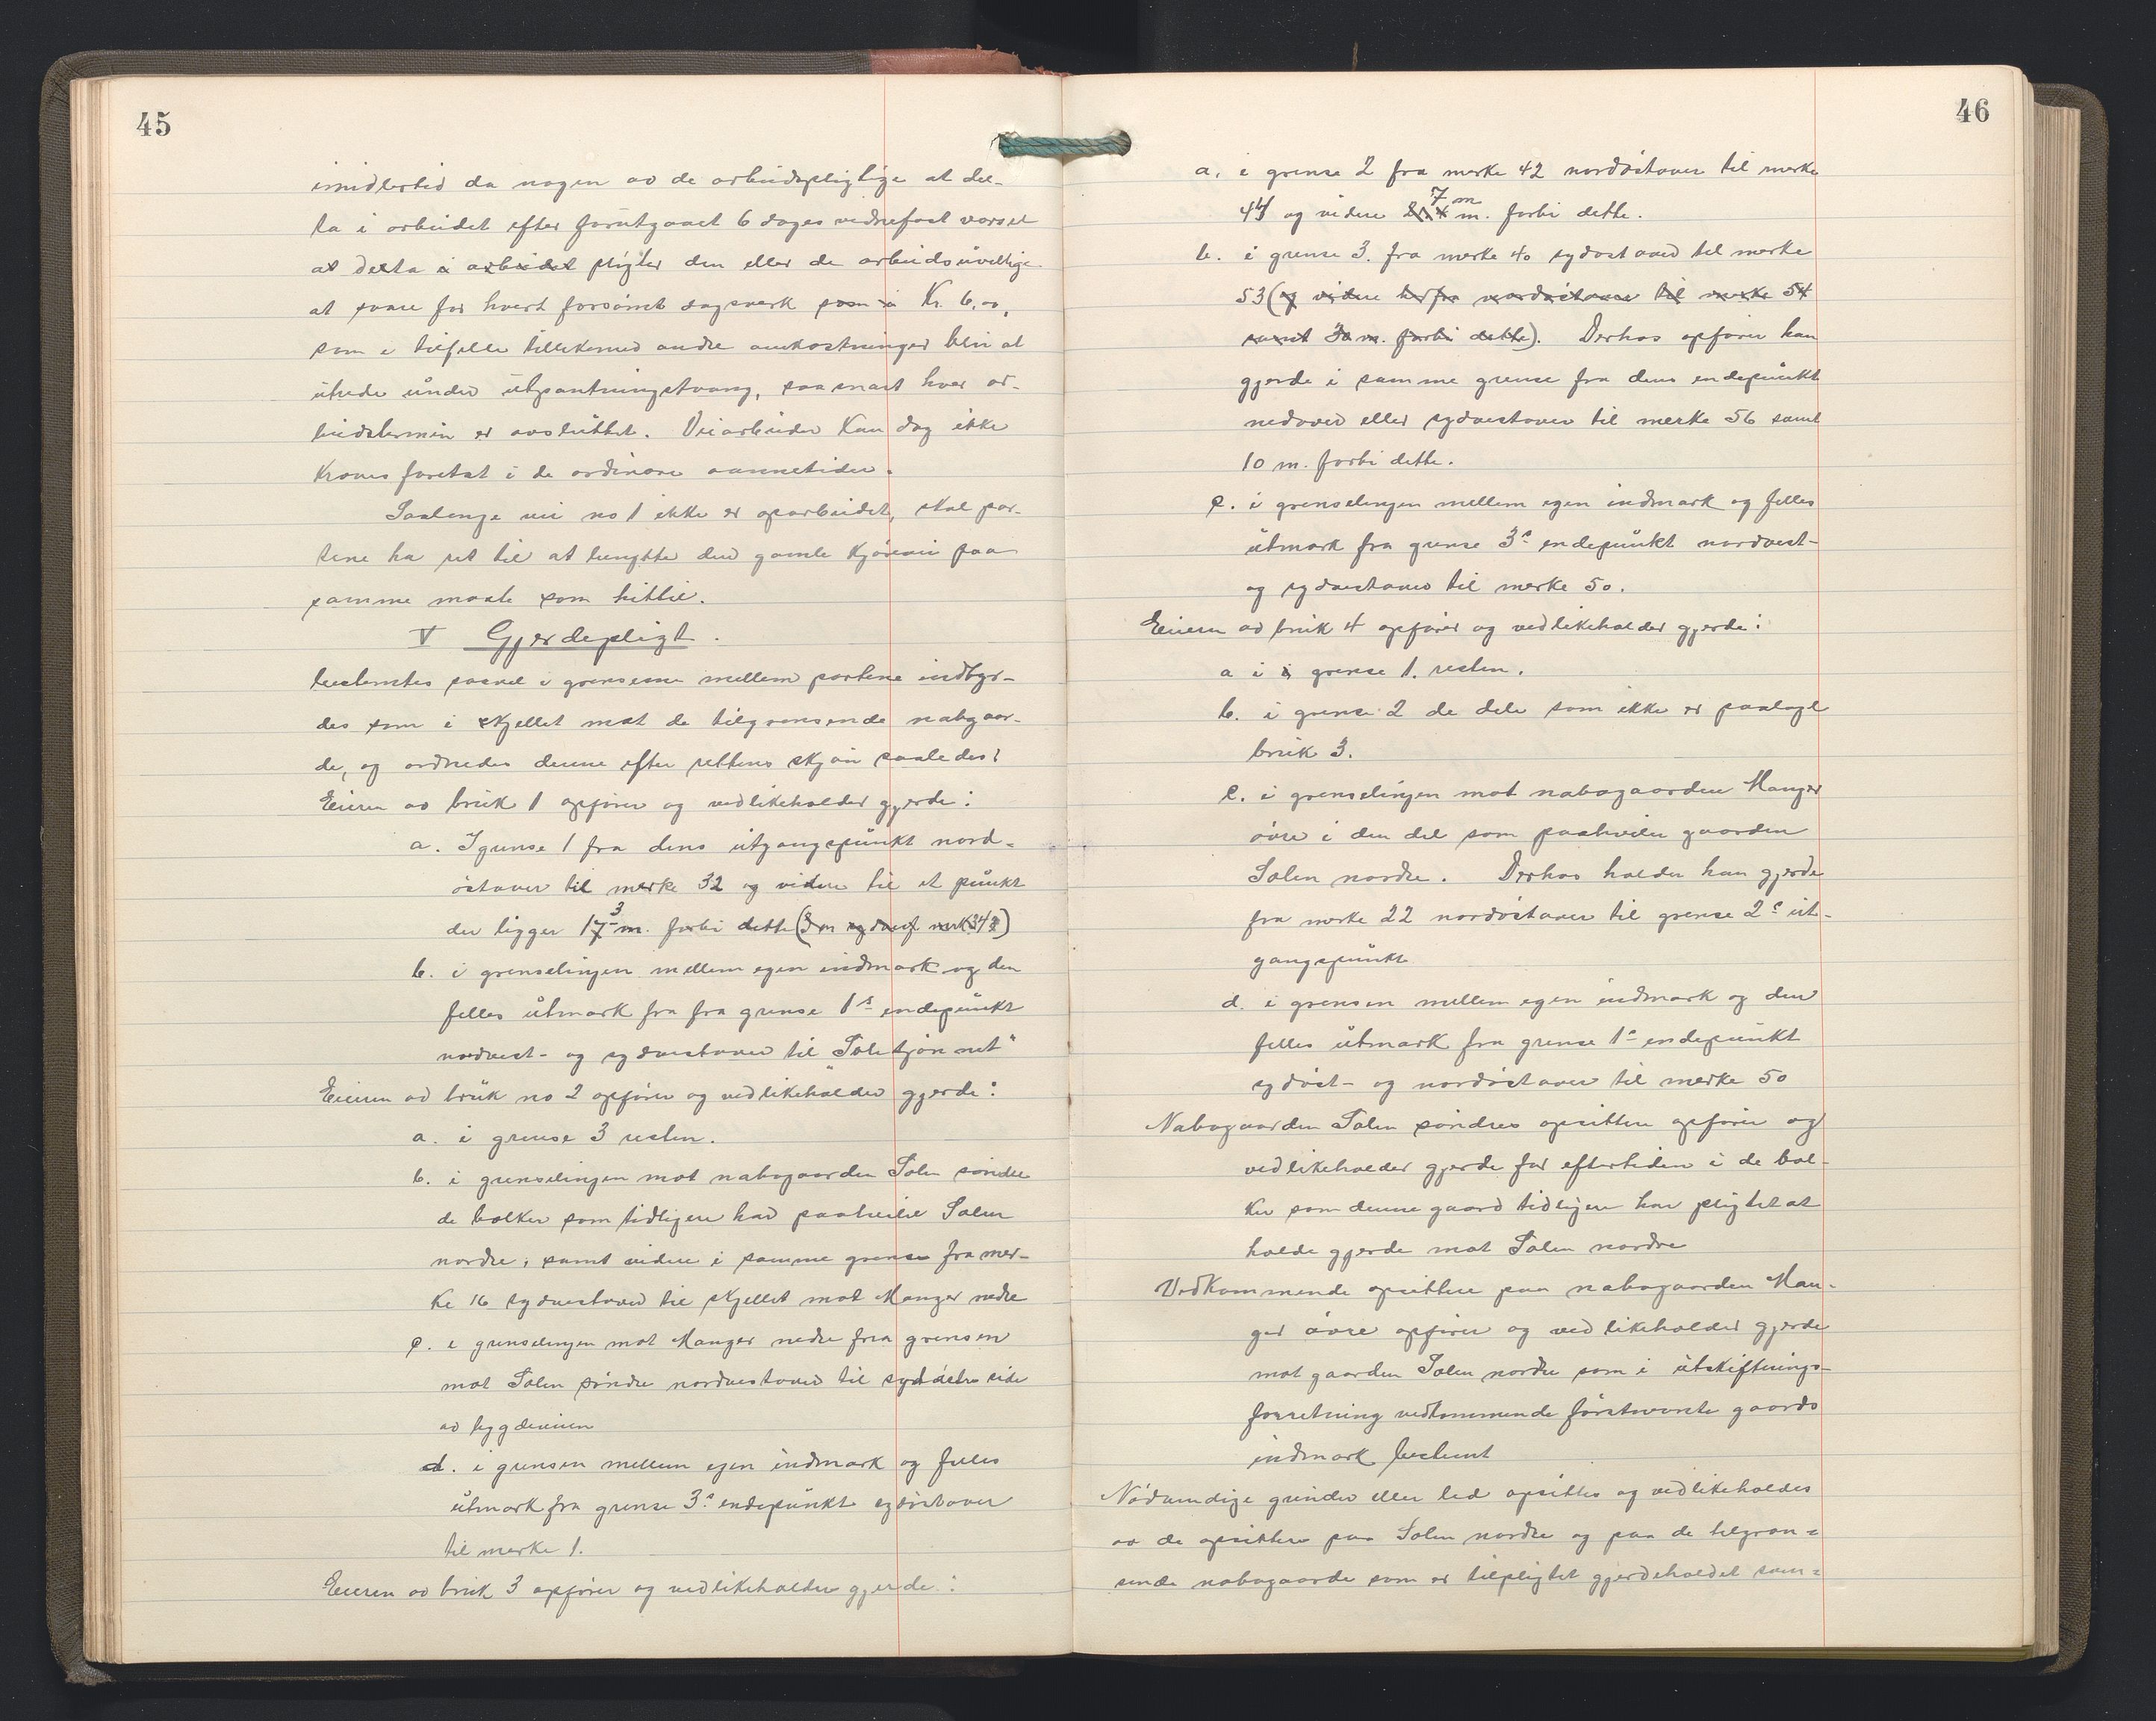 45
imidlertid da nogen av de arbeidspligtige at del-
ta i arbeidet efter forutgaaet 6 dages vidnefast varsel
at delta i arbeidet pligter den eller de arbeidsuvillige
at svare for hvert forsømt dagsverk som i Kr. 6,00,
som i tilfelle tillikemed andre omkostninger blir at
utrede under utpantningstvang, saa snart hver ar-
beidstermin er avsluttet. Veiarbeider kan dog ikke
kræves foretat i de ordinære aannetider.
Saalenge vei no 1 ikke er oparbeidet, skal par-
tene ha ret til at benytte den gamle kjørevei paa
samme maate som hittil.
V Gjerdepligt.
bestemtes saavel i grensene mellem partene indbyr-
des som i skjellet mot de tilgrensende nabogaar-
de, og ordnedes denne efter rettens skjøn saaledes:
Eieren av bruk 1 opfører og vedlikeholder gjerde:
a. I grense 1 fra dens utgangspunkt nord-
østover til merke 32 og videre til et punkt
der ligger 17 3 m. forbi dette (3 m sydvest merke 34)
b. i grenselinjen mellem egen indmark og den
felles utmark fra fra grense 1s endepunkt
nordvest- og sydvestover til "Soletjønnet"
Eieren av bruk no 2 opfører og vedlikeholder gjerde:
a. i grense 3 resten.
b. i grenselinjen mot nabogaarden Solem søndre
de bolker som tidligere har paahvilt Solem
nordre, samt videre i samme grense fra mer-
ke 16 sydvestover til skjellet mot Manger nedre
c. i grenselinjen mot Manger nedre fra grensen
mot Solem søndre nordvestover til sydøstre side
av bygdeveien
d. i grensen mellem egen indmark og felles
utmark fra grense 3s endepunkt sydøstover
til merke 1.
Eieren av bruk 3 opfører og vedlikeholder gjerde:
46
a. i grense 2 fra merke 42 nordøstover til merke
44 og videre 7 m m. forbi dette.
b. i grense 3. fra merke 40 sydvestover til merke
53 (og videre herfra nordvestover til merke 54
samt 30 m. forbi dette). Derhos opfører han
gjerde i samme grense fra dens endepunkt
nedover eller sydvestover til merke 56 samt
10 m. forbi dette.
c. i grenselinjen mellem egen indmark og felles
utmark fra grense 3s endepunkt nordvest-
og sydvestover til merke 50.
Eieren av bruk 4 opfører og vedlikeholder gjerde:
a i i grense 1. resten.
b. i grense 2 de dele som ikke er paalagt
bruk 3.
c. i grenselinjen mot nabogaarden Manger
øvre i den del som paahviler gaarden
Solem nordre. Derhos holder han gjerde
fra merke 22 nordøstover til grense 2s ut-
gangspunkt
d. i grensen mellem egen indmark og den
felles utmark fra grense 1s endepunkt
sydøst- og nordøstover til merke 50
Nabogaarden Solem søndres opsittere opfører og
vedlikeholder gjerde for eftertiden i de bol-
ker som denne gaard tidligere har pligtet at
holde gjerde mot Solem nordre
Vedkommende opsittere paa nabogaarden Man-
ger øvre opfører og vedlikeholder gjerde
mot gaarden Solem nordre som i utskiftnings-
forretning vedkommende førstnevnte gaards
indmark bestemt
Nødvendige grinder eller led opsittes og vedlikeholdes
av de opsittere paa Solem nordre og paa de tilgræn-
sende nabogaarde som er tilpligtet gjerdeholdet sam-